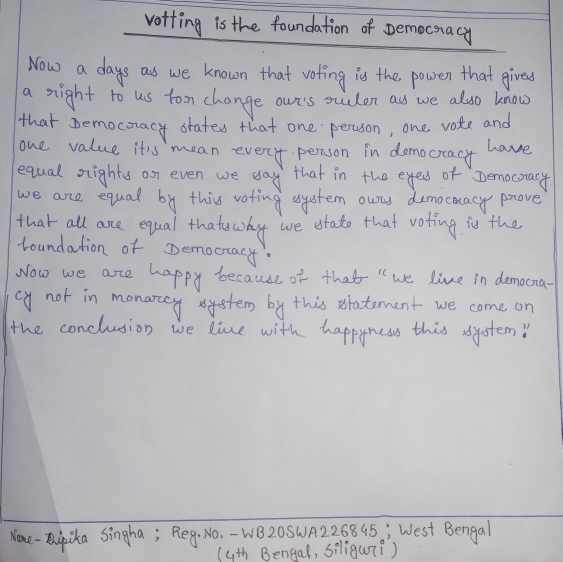 Votting is the foundation of Democracy
Now a days as we known that voting is the power that gives
a right to us for change our's ruler as we also know
that Democracy states that one person, one vote and
one value it's mean every person in democracy have
equal rights or even we say that in the eyes of Democracy
we are equal by this voting system ours democracy prove
that all are equal thatswhy we state that voting is the
foundation of Democracy.
Now we are happy because of that "we live in democra-
cy not in monarcy system by this statement we come on
the conclusion we live with happyness this system."
Name - Dipika Singha ; Reg. No. - WB20SWA226845 ; West Bengal
(4th Bengal, Siliguri)